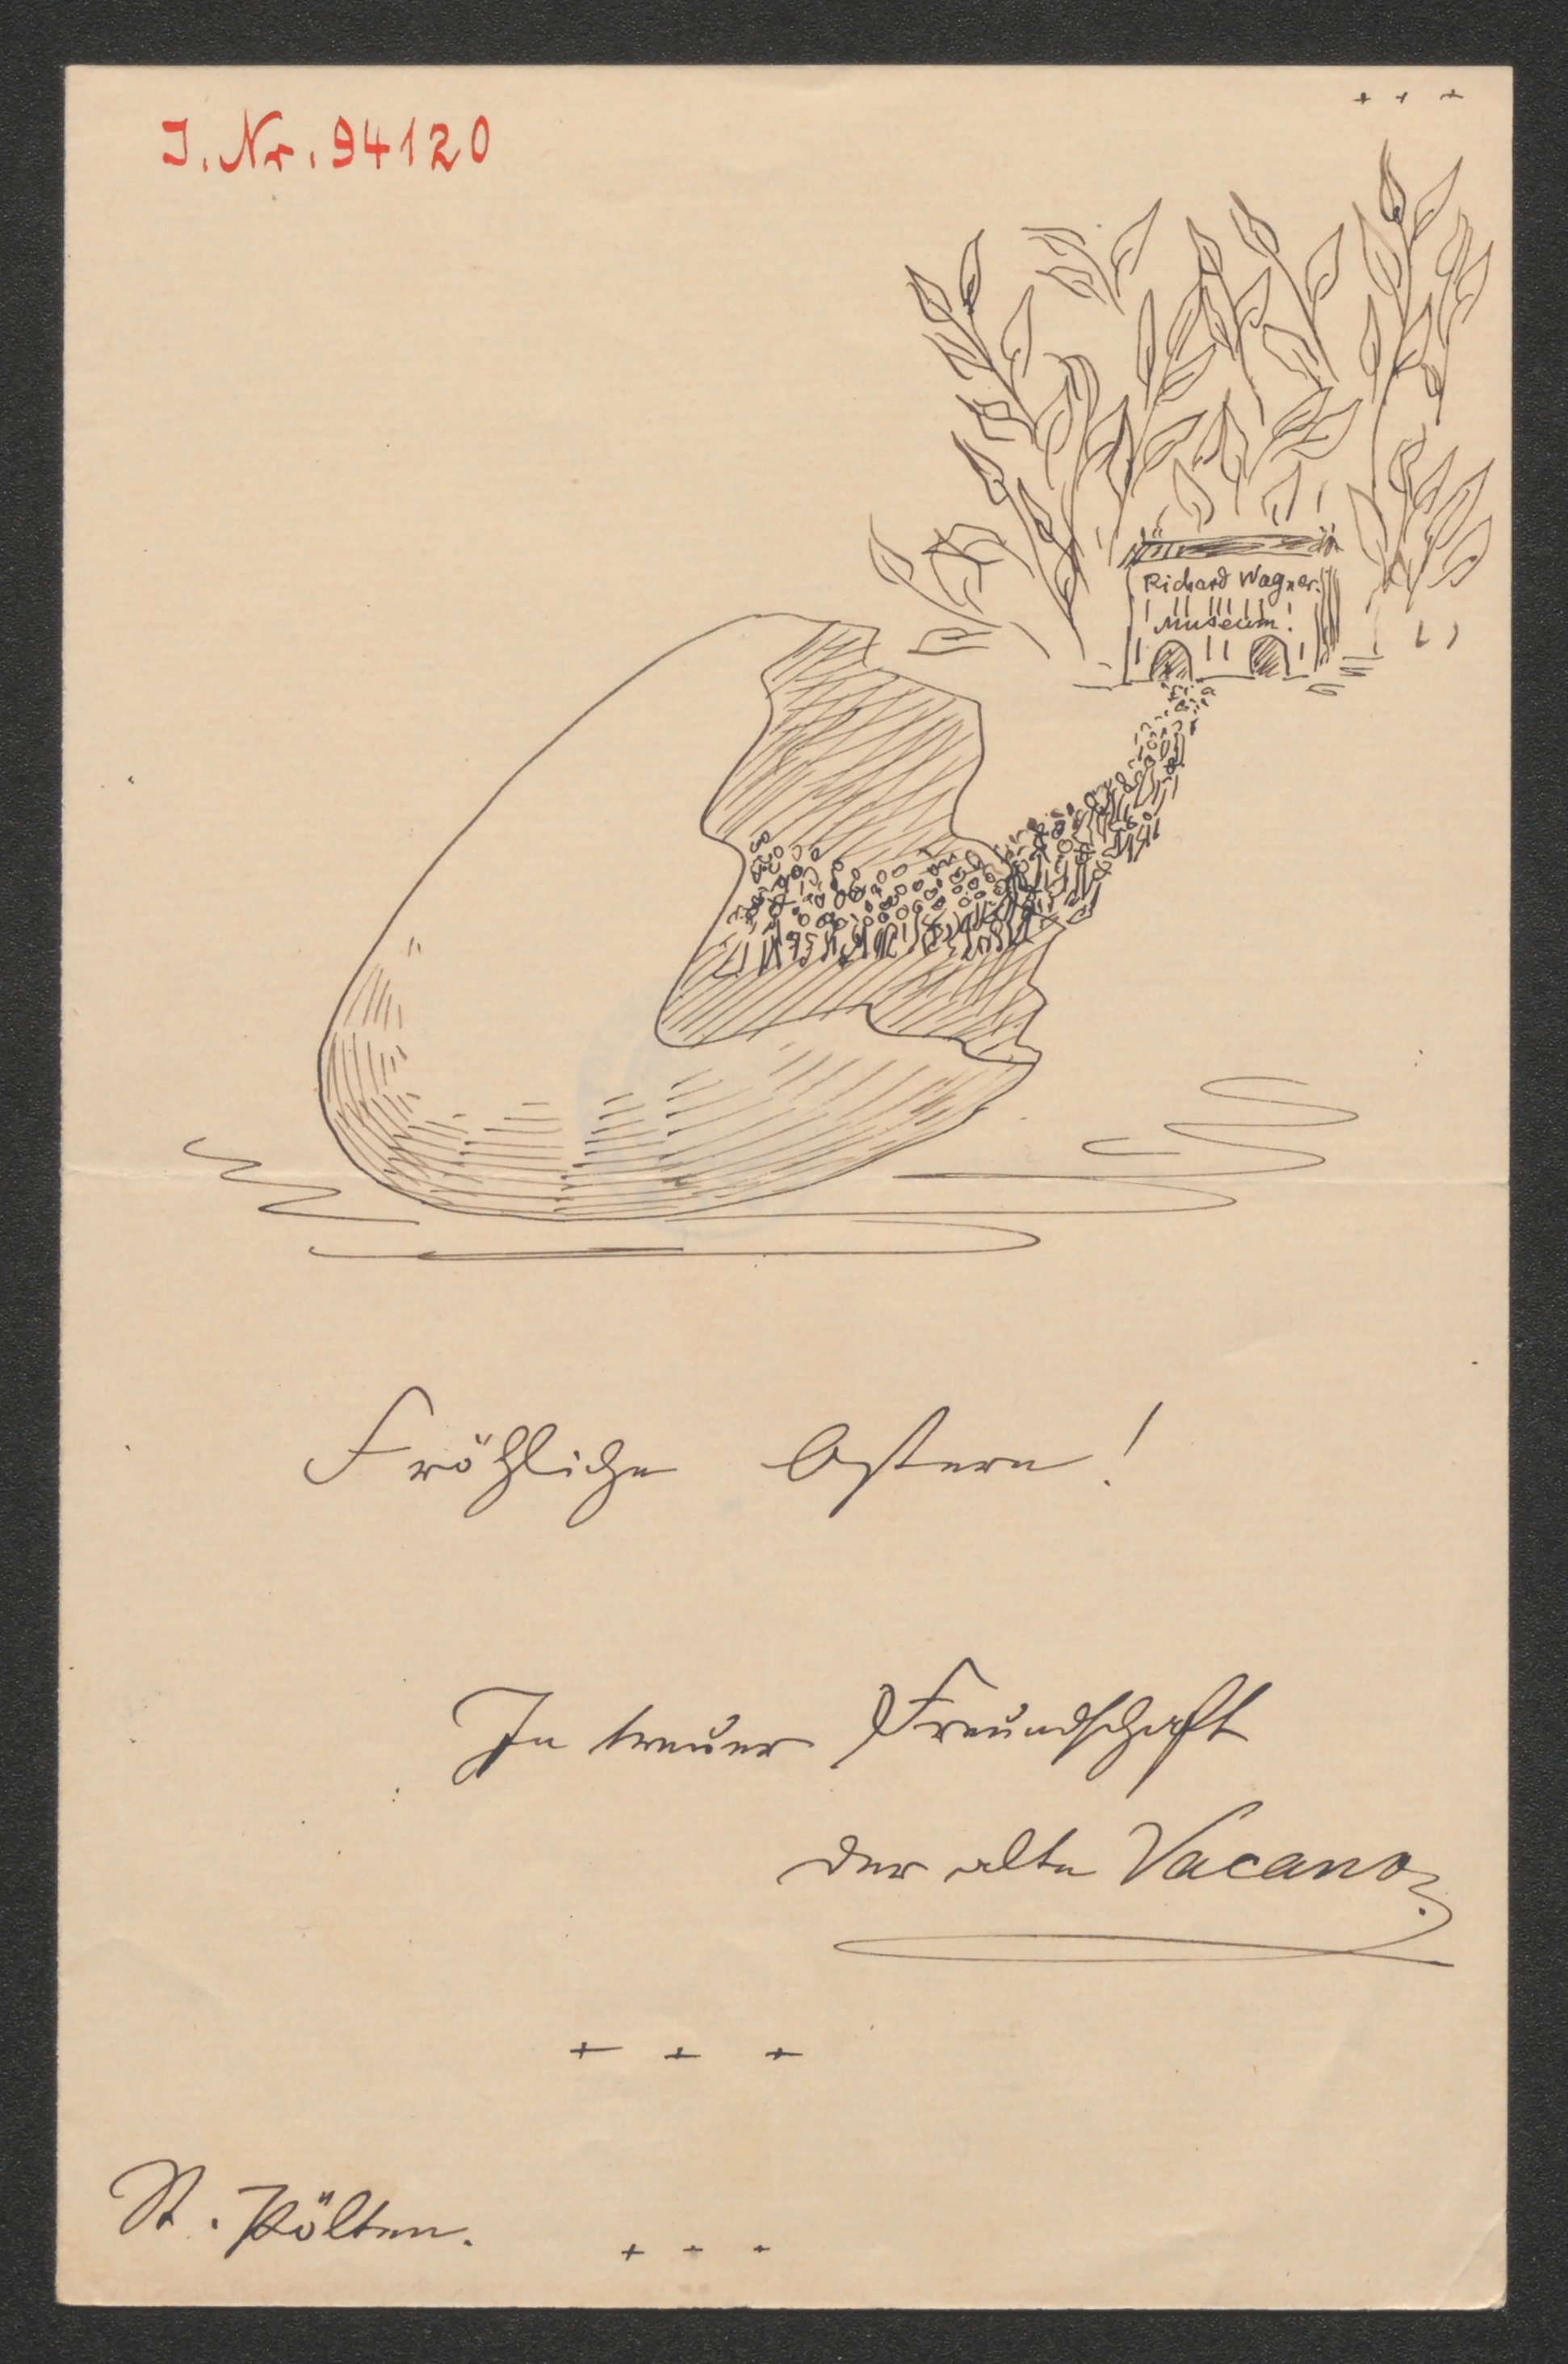 + + +
I. Nr. 94120
Richard Wagner.
Museum!
Fröhliche Ostern!
In treuer Freundschaft
der alte Vacano.
+ + +
St. Pölten.
+ + +